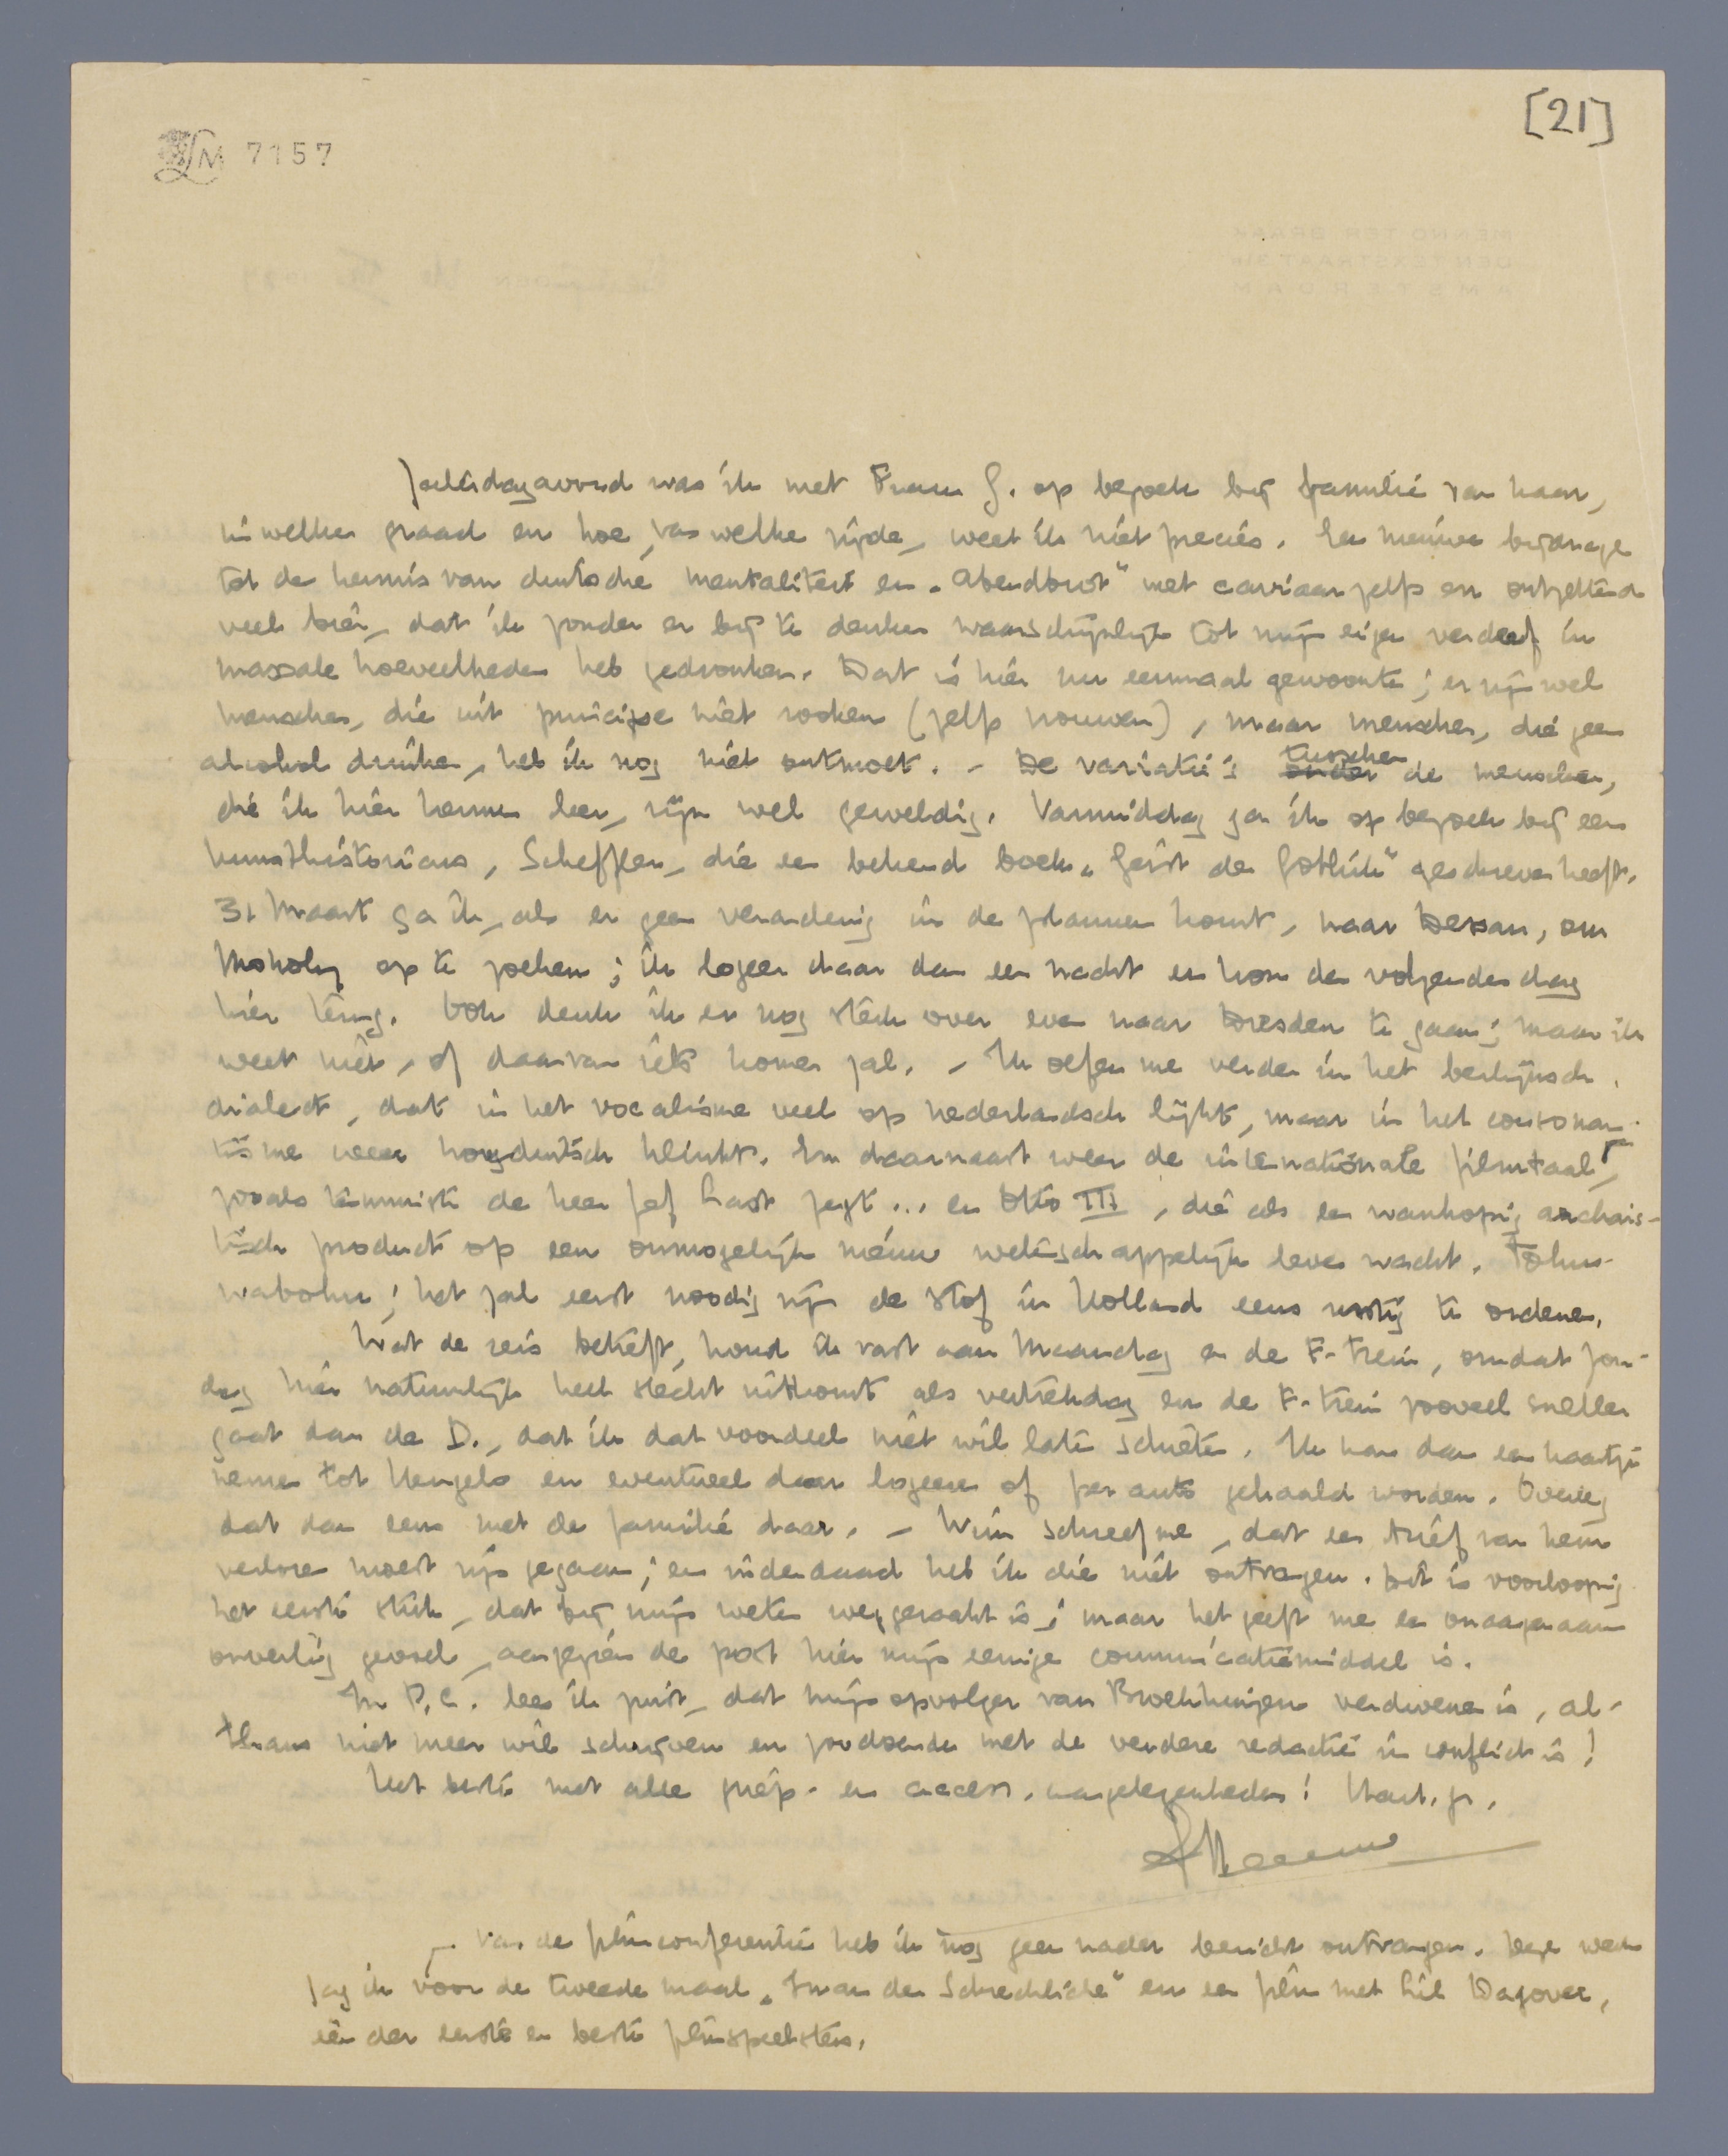 [21]
LM 7157
MENNO TER BRAAK
DEN TEXSTRAAT
AMSTERDAM
Zaterdagavond was ik met Frau G. op bezoek bij familie van haar,
in welken graad en hoe, van welke zijde, weet ik niet precies. Een nieuwe bijdrage
tot de kennis van duitsche mentaliteit en „Abendbrot" met caviaar zelfs en ontzettend
veel bier, dat ik zonder er bij te denken waarschijnlijk tot mijn eigen verderf in
massale hoeveelheden heb gedronken. Dat is hier nu eenmaal gewoonte; er zijn wel
menschen, die uit principe niet rooken (zelfs vrouwen), maar menschen, die geen
alcohol drinken, heb ik nog niet ontmoet. - De variatie's onder tusschen de menschen,
die ik hier kennen leer, zijn wel geweldig. Vanmiddag ga ik op bezoek bij een
kunsthistoricus, Scheffler, die een bekend boek „Geist der Gothik" geschreven heeft.
31 Maart ga ik, als er geen verandering in de plannen komt, naar Dessau, om
Moholy op te zoeken; ik logeer daar dan een nacht en kom den volgenden dag
hier terug. Ook denk ik er nog steeds over even naar Dresden te gaan; maar ik
weet niet, of daarvan iets komen zal. - Ik oefen me verder in het berlijnsch
dialect, dat in het vocalisme veel op nederlandsch lijkt, maar in het consonan-
tisme weer hoogduitsch klinkt. En daarnaast weer de internationale filmtaal,
zooals tenminste de heer Jef Last zegt... en Otto III, die als een wanhopig archais-
tisch product op een onmogelijk nieuw wetenschappelijk leven wacht. Tohu-
wabohu; het zal eerst noodig zijn de stof in Holland eens rustig te ordenen.
Wat de reis betreft, houd ik vast aan Maandag en de F-trein, omdat Zon-
dag hier natuurlijk heel slecht uitkomt als vertrekdag en de F-trein zooveel sneller
gaat dan de D., dat ik dat voordeel niet wil laten schieten. Ik kan dan een kaartje
nemen tot Hengelo en eventueel daar logeeren of per auto gehaald worden. Overleg
dat dan eens met de familie daar. - Wim schreef me, dat een brief van hem
verloren moest zijn gegaan; en inderdaad heb ik die niet ontvangen. Dit is voorloopig
het eerste stuk, dat bij mijn weten weggeraakt is; maar het geeft me een onaangenaam
onveilig gevoel, aangezien de post hier mijn eenige communicatiemiddel is.
In P.C. lees ik juist, dat mijn opvolger van Brockhuijzen verdwenen is, al-
thans niet meer wil schrijven en zoodoende met de verdere redactie in conflict is!
Het beste met alle griep- en access. aangelegenheden! Hart. gr.
Menno
Van de filmconferentie heb ik nog geen nader bericht ontvangen. Deze week
zag ik voor de tweede maal „Iwan der Schreckliche" en een film met Lil Dagover,
één der eerste en beste filmspeelsters.